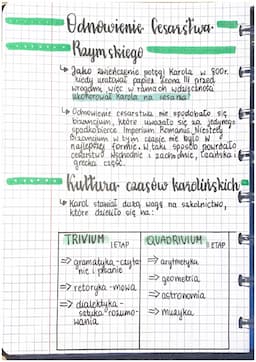 Odnowienie Cesarstwa
Rzymskiego
↳ Jako zwieńczenie potęgi Karola w 800r.
kiedy uratował papież Leona III przed
wrogami, więc w ramach wdzięczności
ukoronował Karola na cesarza
↳ Odnowienie cesarstwa nie spodobało się
bizancjum, które uważało się za jedynego
spadkobierce Imperium Romania. Niestety
bizancjum w tym czasie nie było w
najlepszej formie. W taki sposób powstało
cesarstwo wschodnie i zachodnie, łacińska i
grecka część.
Kultura czasów karolińskich
↳ Karol stawiał dużą wagę na szkolnictwo,
które dzieliło się na:
TRIVIUM I ETAP
QUADRIVIUM II ETAP
⇒ gramatyka - czyta-
nie i pisanie
⇒ retoryka - mowa
⇒ dialektyka -
sztuka rozumo-
wania
⇒ arytmetyka
⇒ geometria
⇒ astronomia
⇒ muzyka